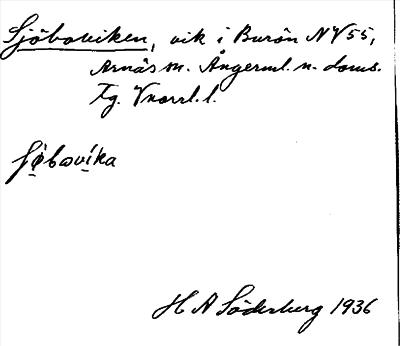 Sjöboviken, vik i Burön NV 55,
Arnäs sn. Ångerml. n. doms.
Fg. Vnorrl. l.
Söbovika
H A Söderberg 1936